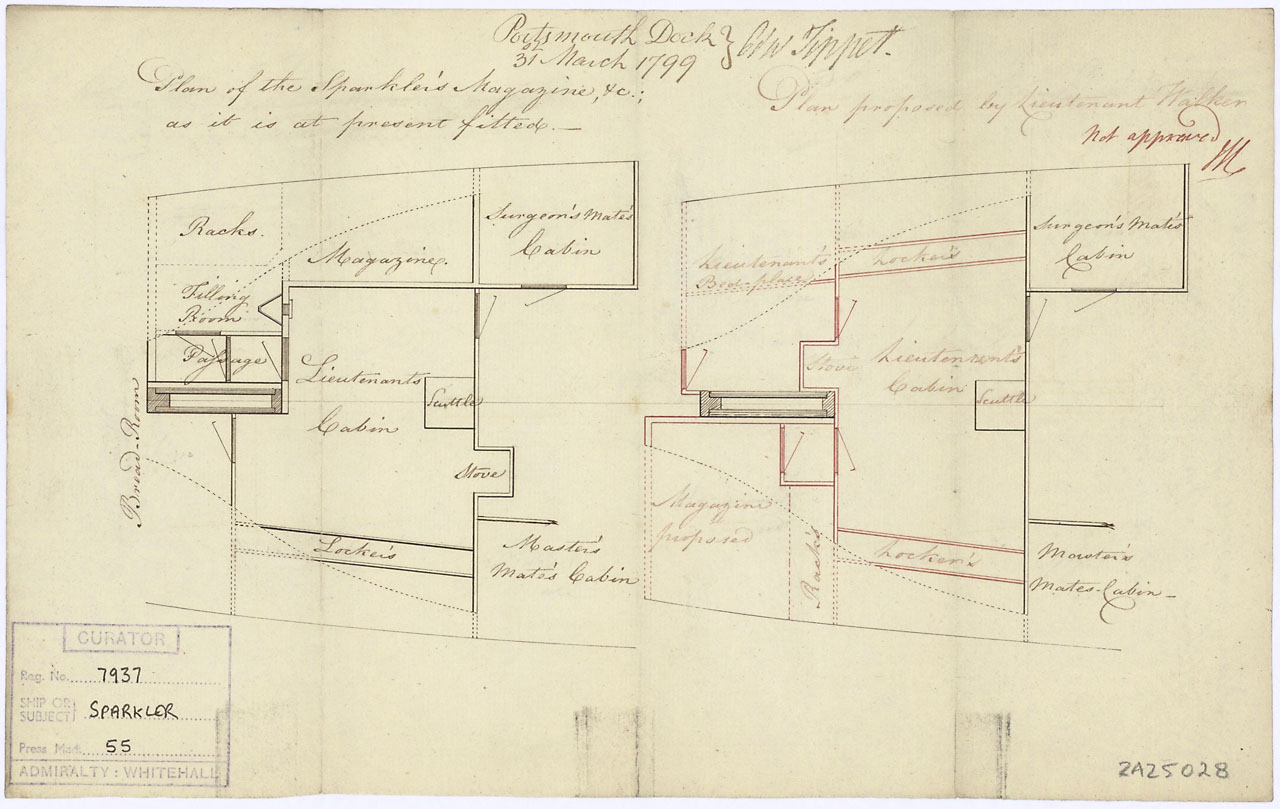 Portsmouth Dock }
31st March 1799 } Edw Tippet.
Plan of the Sparkler's Magazine, &c.;
as it is at present fitted.—
Plan proposed by Lieutenant Walker
Not approved
Racks.
Magazine.
Surgeon's Mate's
Cabin
Filling
Room
Passage
Lieutenants
Cabin
Scuttle
Stove
Bread-Room
Lockers
Master's
Mate's Cabin
Lieutenant's
Bed-place
Lockers
Surgeon's Mate's
Cabin
Stove
Lieutenant's
Cabin
Scuttle
Magazine
as
proposed
Racks
Locker's
Master's
Mates-Cabin—
CURATOR
Reg. No. 7937
SHIP OR
SUBJECT } SPARKLER
Press Mark 55
ADMIRALTY: WHITEHALL
ZAZ5028